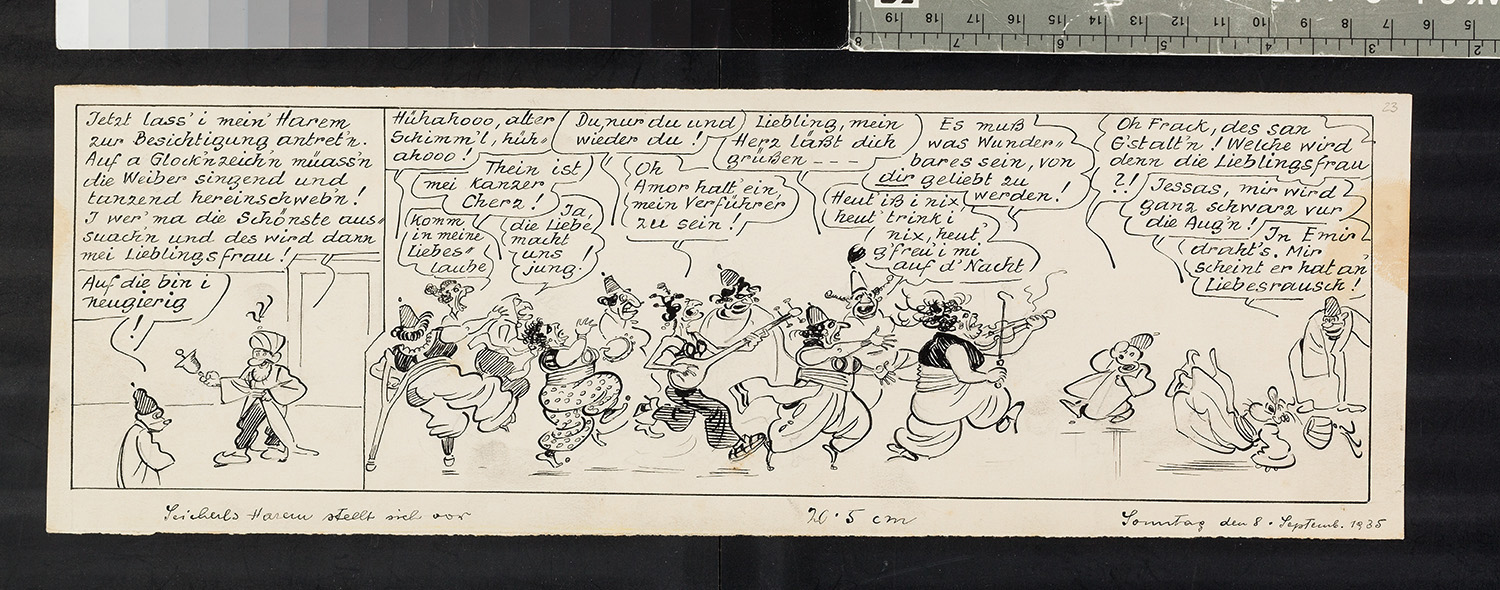 Jetzt lass' i mein' Harem
zur Besichtigung antret'n.
Auf a Glock'nzeich'n müass'n
die Weiber singend und
tanzend hereinschweb'n!
I wer' ma die Schönste aus=
suach'n und des wird dann
mei Lieblingsfrau!
Auf die bin i
neugierig
!
?
Hühahooo, alter
Schimm'l, hüh=
ahooo!
Thein ist
mei Kanzer
Cherz!
Komm
in meine
Liebes=
laube
Ja,
die Liebe
macht
uns
jung!
Du, nur du und
wieder du!
Oh
Amor halt' ein,
mein Verführer
zu sein!
Liebling, mein
Herz läßt dich
grüßen ---
Es muß
was Wunder=
bares sein, von
dir geliebt zu
werden!
Heut' iß i nix
heut' trink i
nix, heut'
g'freu' i mi
auf d' Nacht
Oh Frack, des san
G'stalt'n! Welche wird
denn die Lieblingsfrau
?!
Jessas, mir wird
ganz schwarz vur
die Aug'n!
In Emir
draht's. Mir
scheint er hat an'
Liebesrausch!
23
Seicherls Harem stellt sich vor
20·5 cm
Sonntag den 8. Septemb. 1935
19 18 17 16 15 14 13 12 11 10 9 8 7 6 5
8 7 6 5 4 3 2